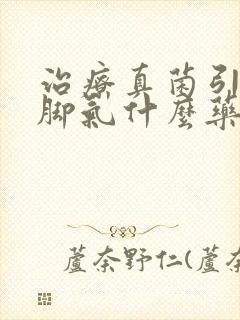 治療真菌引
腳氣什麼藥
蘆奈野仁(蘆奈